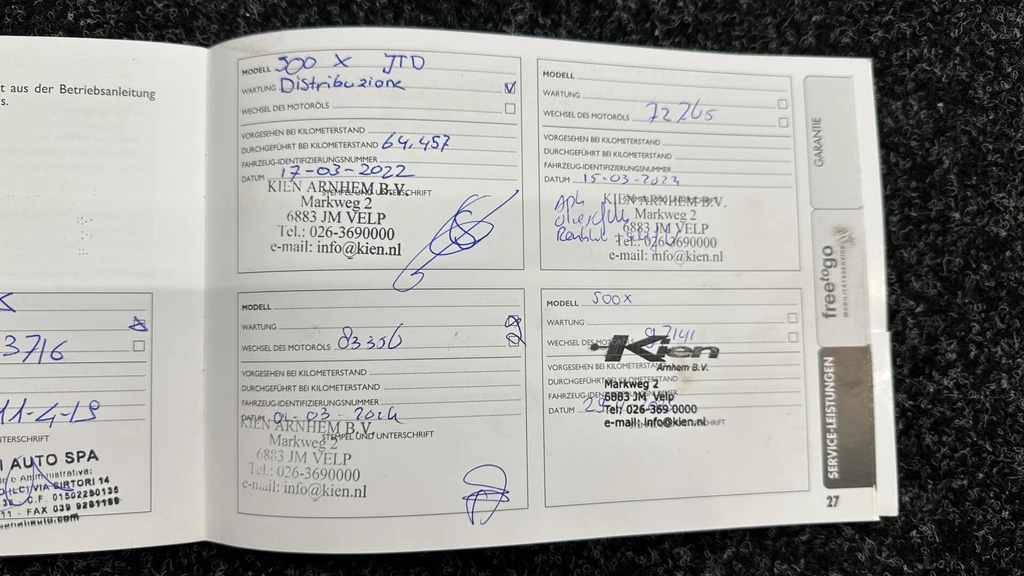 t aus der Betriebsanleitung
s.
3716
11-4-19
NTERSCHRIFT
I AUTO SPA
e Amministrativa:
(LC) VIA SIRTORI 14
C.F. 01502250135
11 - FAX 039 9281199
MODELL 500 X JTD
WARTUNG Distribuzione
WECHSEL DES MOTORÖLS
VORGESEHEN BEI KILOMETERSTAND
DURCHGEFÜHRT BEI KILOMETERSTAND 64,457
FAHRZEUG-IDENTIFIZIERUNGSNUMMER
DATUM 17-03-2022
STEMPEL UND UNTERSCHRIFT
KIEN ARNHEM B.V.
Markweg 2
6883 JM VELP
Tel.: 026-3690000
e-mail: info@kien.nl
MODELL
WARTUNG
WECHSEL DES MOTORÖLS 72765
VORGESEHEN BEI KILOMETERSTAND
DURCHGEFÜHRT BEI KILOMETERSTAND
FAHRZEUG-IDENTIFIZIERUNGSNUMMER
DATUM 15-03-2023
KIEN ARNHEM B.V.
Markweg 2
6883 JM VELP
Tel.: 026-3690000
e-mail: info@kien.nl
MODELL
WARTUNG
WECHSEL DES MOTORÖLS 83356
VORGESEHEN BEI KILOMETERSTAND
DURCHGEFÜHRT BEI KILOMETERSTAND
FAHRZEUG-IDENTIFIZIERUNGSNUMMER
DATUM 01-03-2024
STEMPEL UND UNTERSCHRIFT
KIEN ARNHEM B.V.
Markweg 2
6883 JM VELP
Tel.: 026-3690000
e-mail: info@kien.nl
MODELL 500X
WARTUNG
WECHSEL DES 97141
VORGESEHEN BEI KILOMETERSTAND
DURCHGEFÜHRT
DATUM
Kien
Arnhem B.V.
Markweg 2
6883 JM Velp
Tel: 026-369 0000
e-mail: info@kien.nl
GARANTIE
freetogo
MOBILITÄTSSERVICE
SERVICE-LEISTUNGEN
27